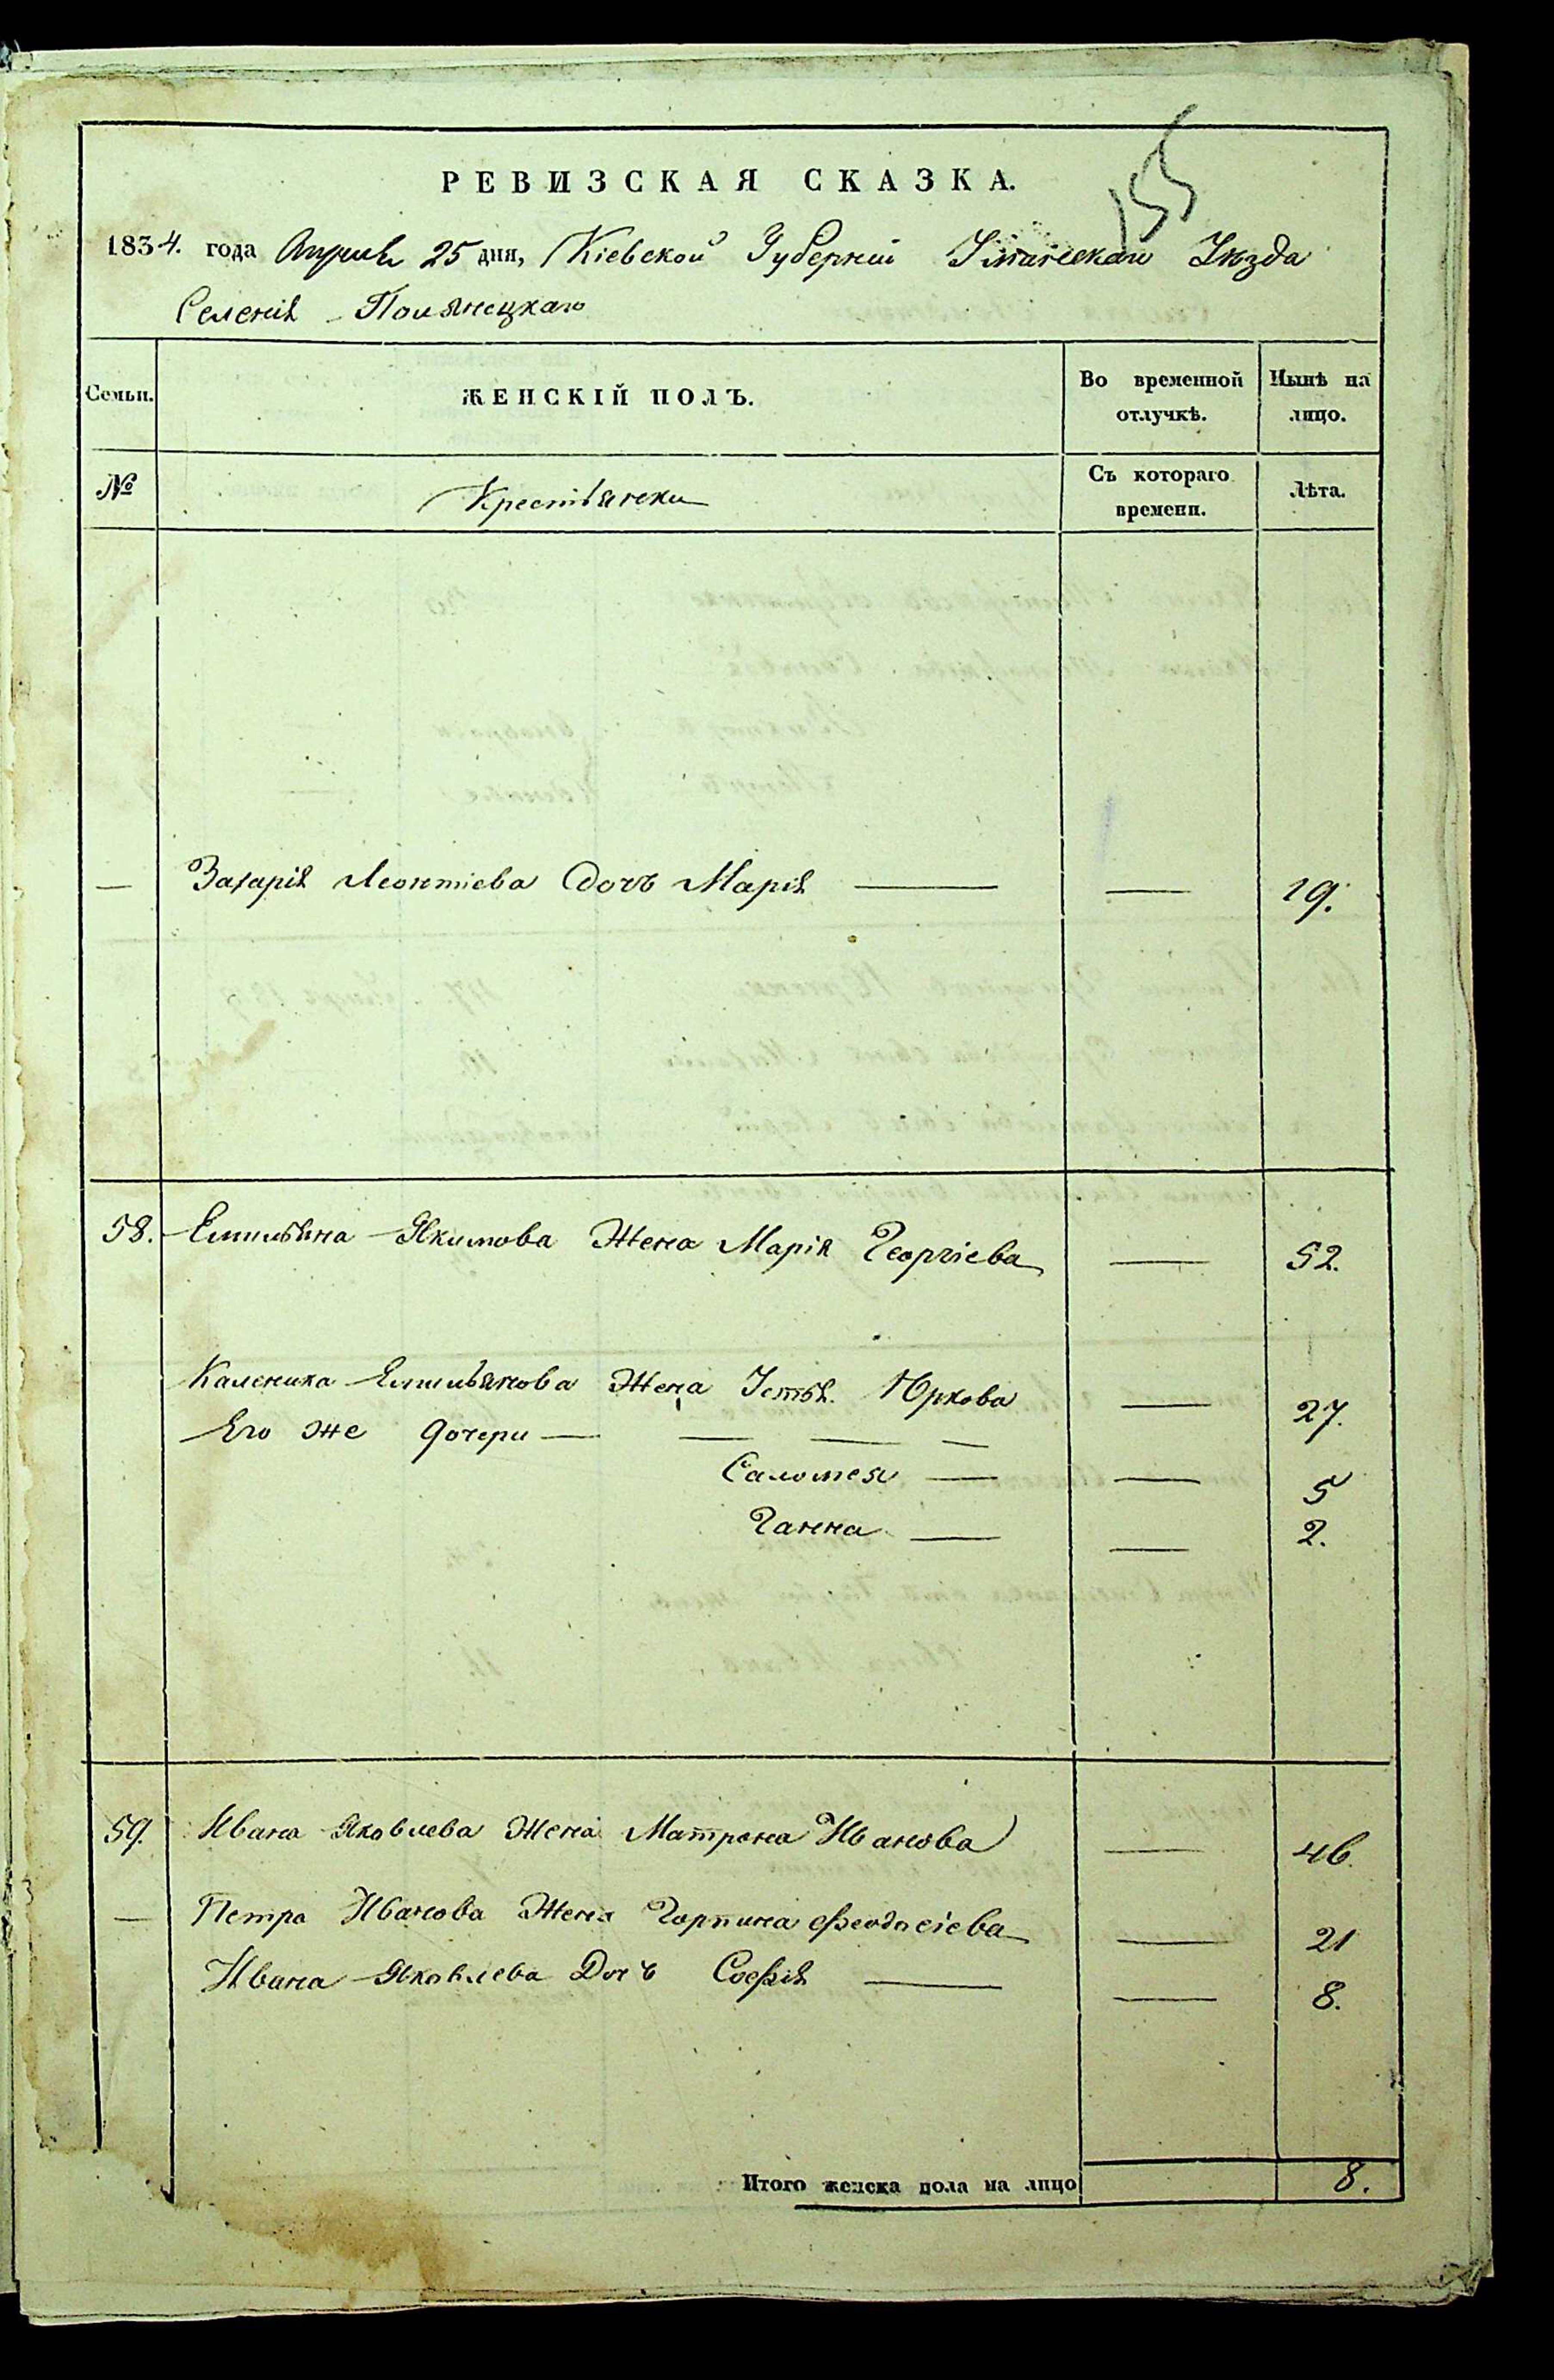 155
РЕВИЗСКАЯ СКАЗКА.
1834. года Апреля 25 дня, Кіевской Губерніи Уманскаго Уѣзда
Селенія Полянецкаго
Семьи. ЖЕНСКІЙ ПОЛЪ. Во временной отлучкѣ. Нынѣ на лицо.
№ Крестьянки Съ котораго времени. Лѣта.
— Захарія Леонтіева Дочь Марія — — 19.
58. Емильяна Якимова Жена Марія Георгіева — 52.
Каленика Емильянова Жена Устья Юркова — 27.
Его же дочери — — — —
Саломея — — 5
Ганна — — 2.
59. Ивана Яковлева Жена Матрона Иванова — 46.
— Петра Иванова Жена Горпина Феодосіева — 21
Ивана Яковлева Дочь Софія — — 8.
Итого женска пола на лицо 8.